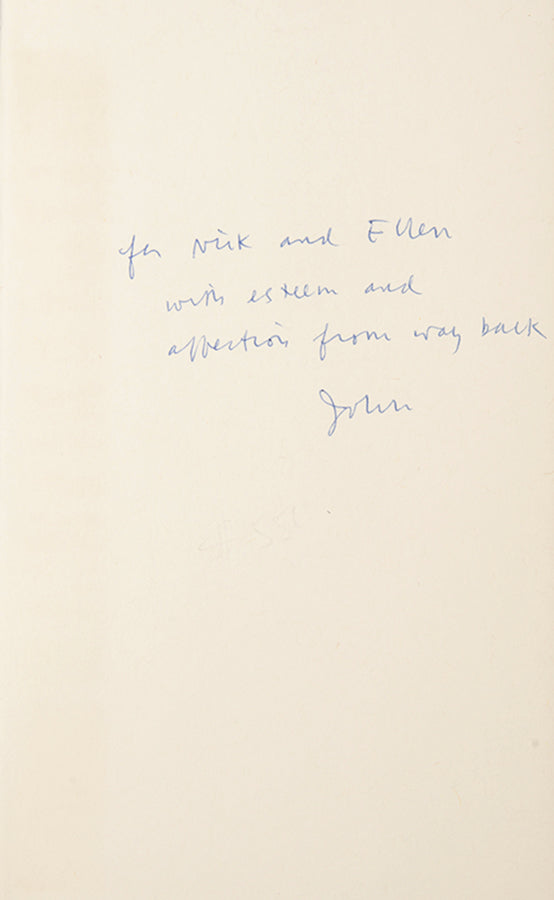 for Nick and Ellen
with esteem and
affection from way back
John